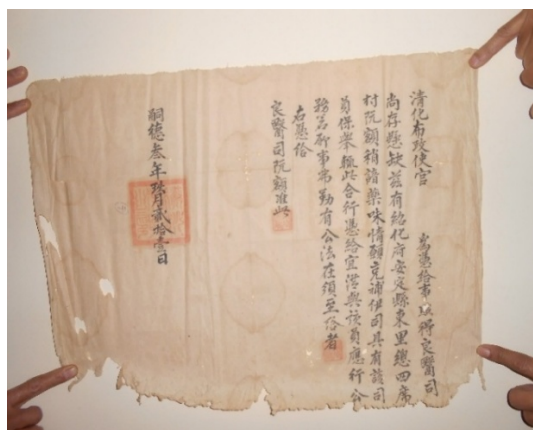 清化布政使官 為憑給事照得良醫司
尚存懸缺茲有紹化府安定縣東里總四席
村阮額稍諳藥味情願充補伊司具有該司
員保舉輒此合行憑給宜從與該員應行公
務若所事弗勤有公法在須至给者
右憑給
良醫司阮額准此
嗣德叁年陸月貳拾壹日